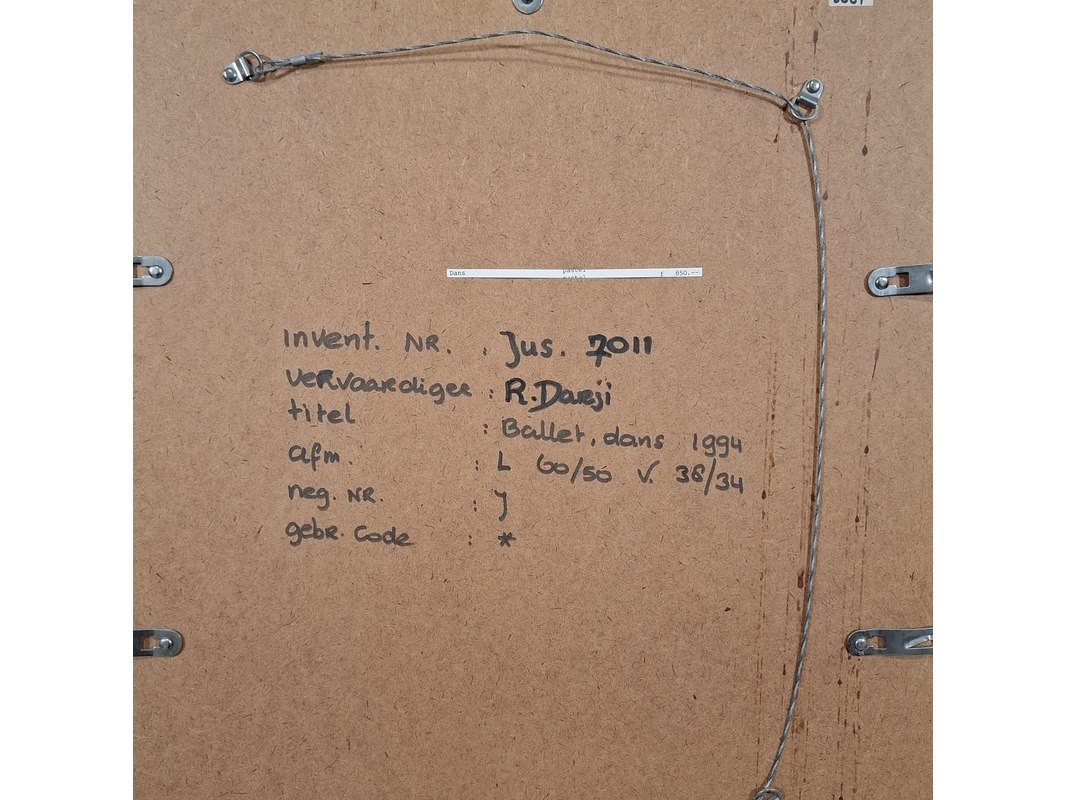 Dans pastel f 850,--
invent. NR. : Jus. 7011
vervaardiger : R. Darji
titel : Ballet, dans 1994
afm. : L 60/50 V. 36/34
neg. NR. : J
gebr. Code : *